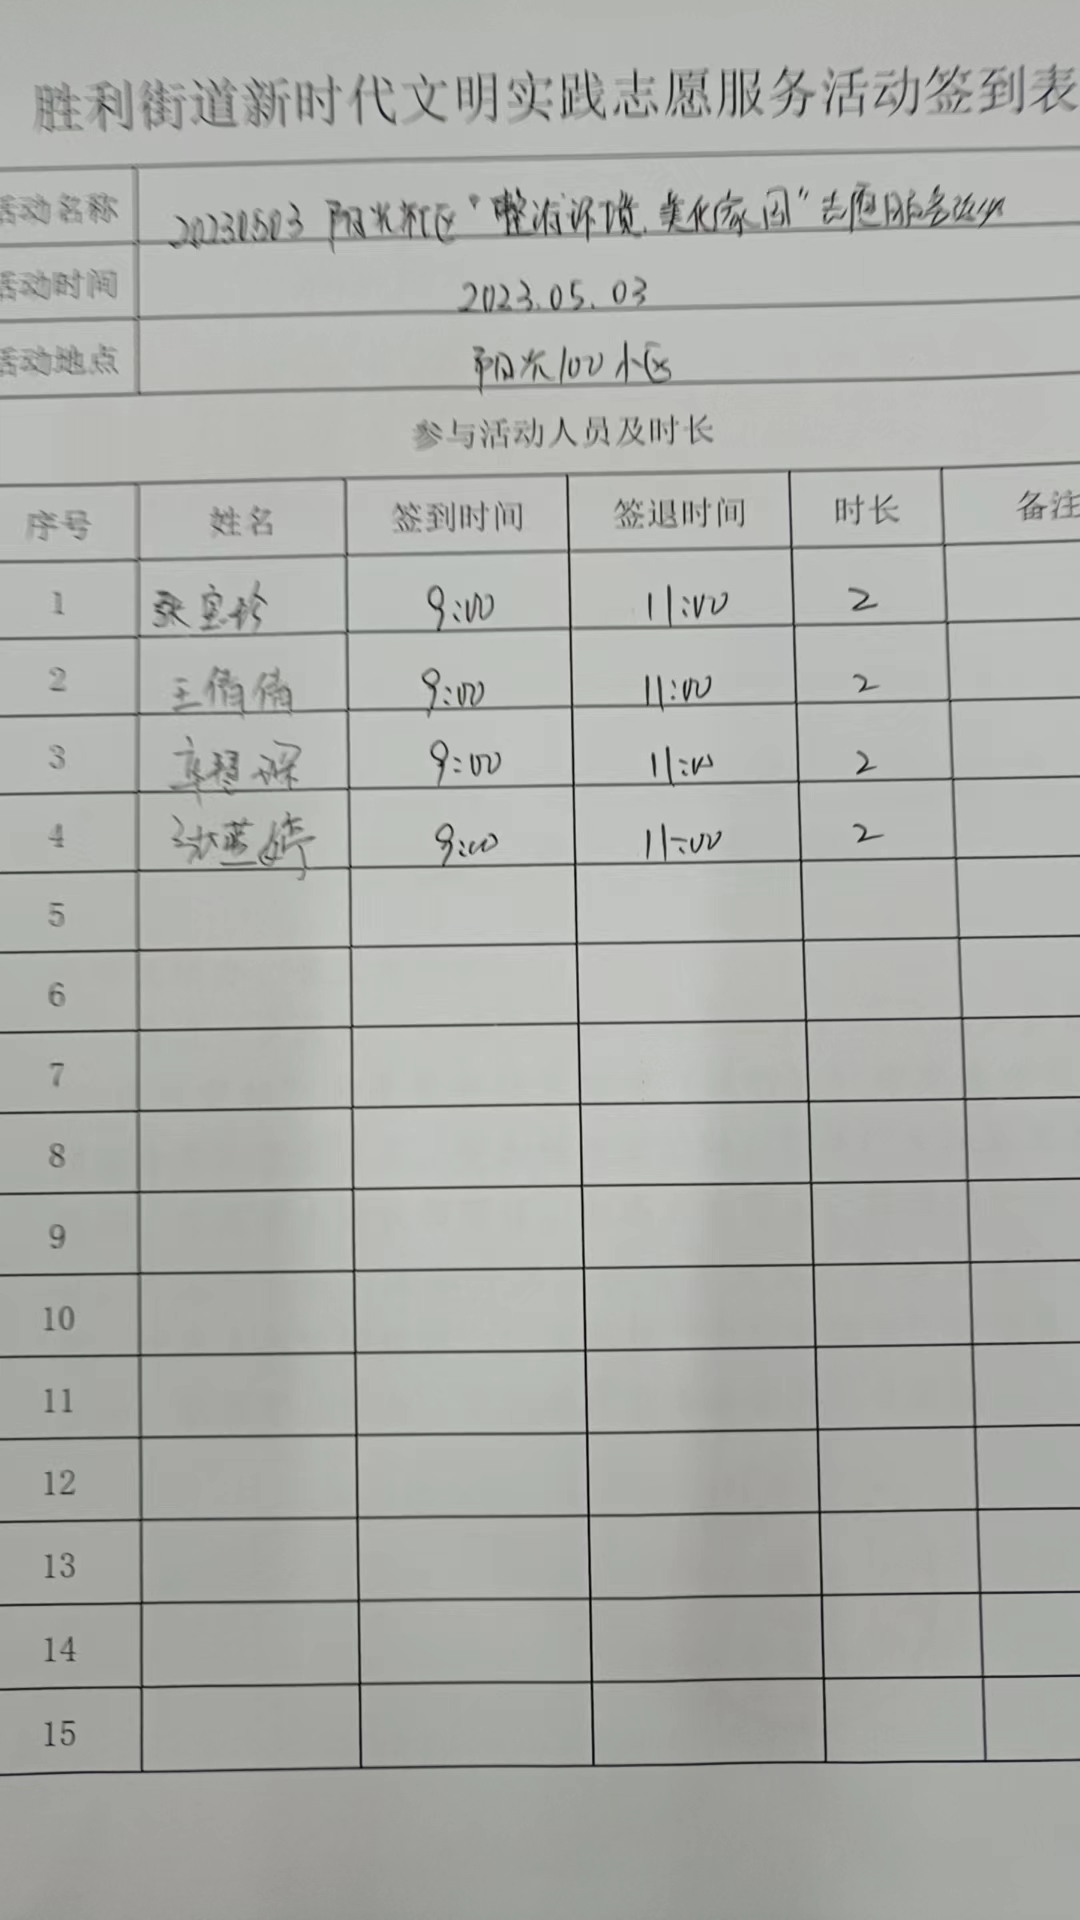 胜利街道新时代文明实践志愿服务活动签到表
活动名称 20230503 阳光社区“整治环境、美化家园”志愿服务活动
活动时间 2023.05.03
活动地点 阳光100小区
参与活动人员及时长
序号 姓名 签到时间 签退时间 时长 备注
1 张宝珍 9:00 11:00 2
2 王倩倩 9:00 11:00 2
3 9:00 11:00 2
4 9:00 11:00 2
5
6
7
8
9
10
11
12
13
14
15